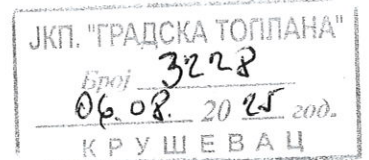 ЈКП. "ГРАДСКА ТОПЛАНА"
Број 3228
06.08. 20 25 год.
КРУШЕВАЦ